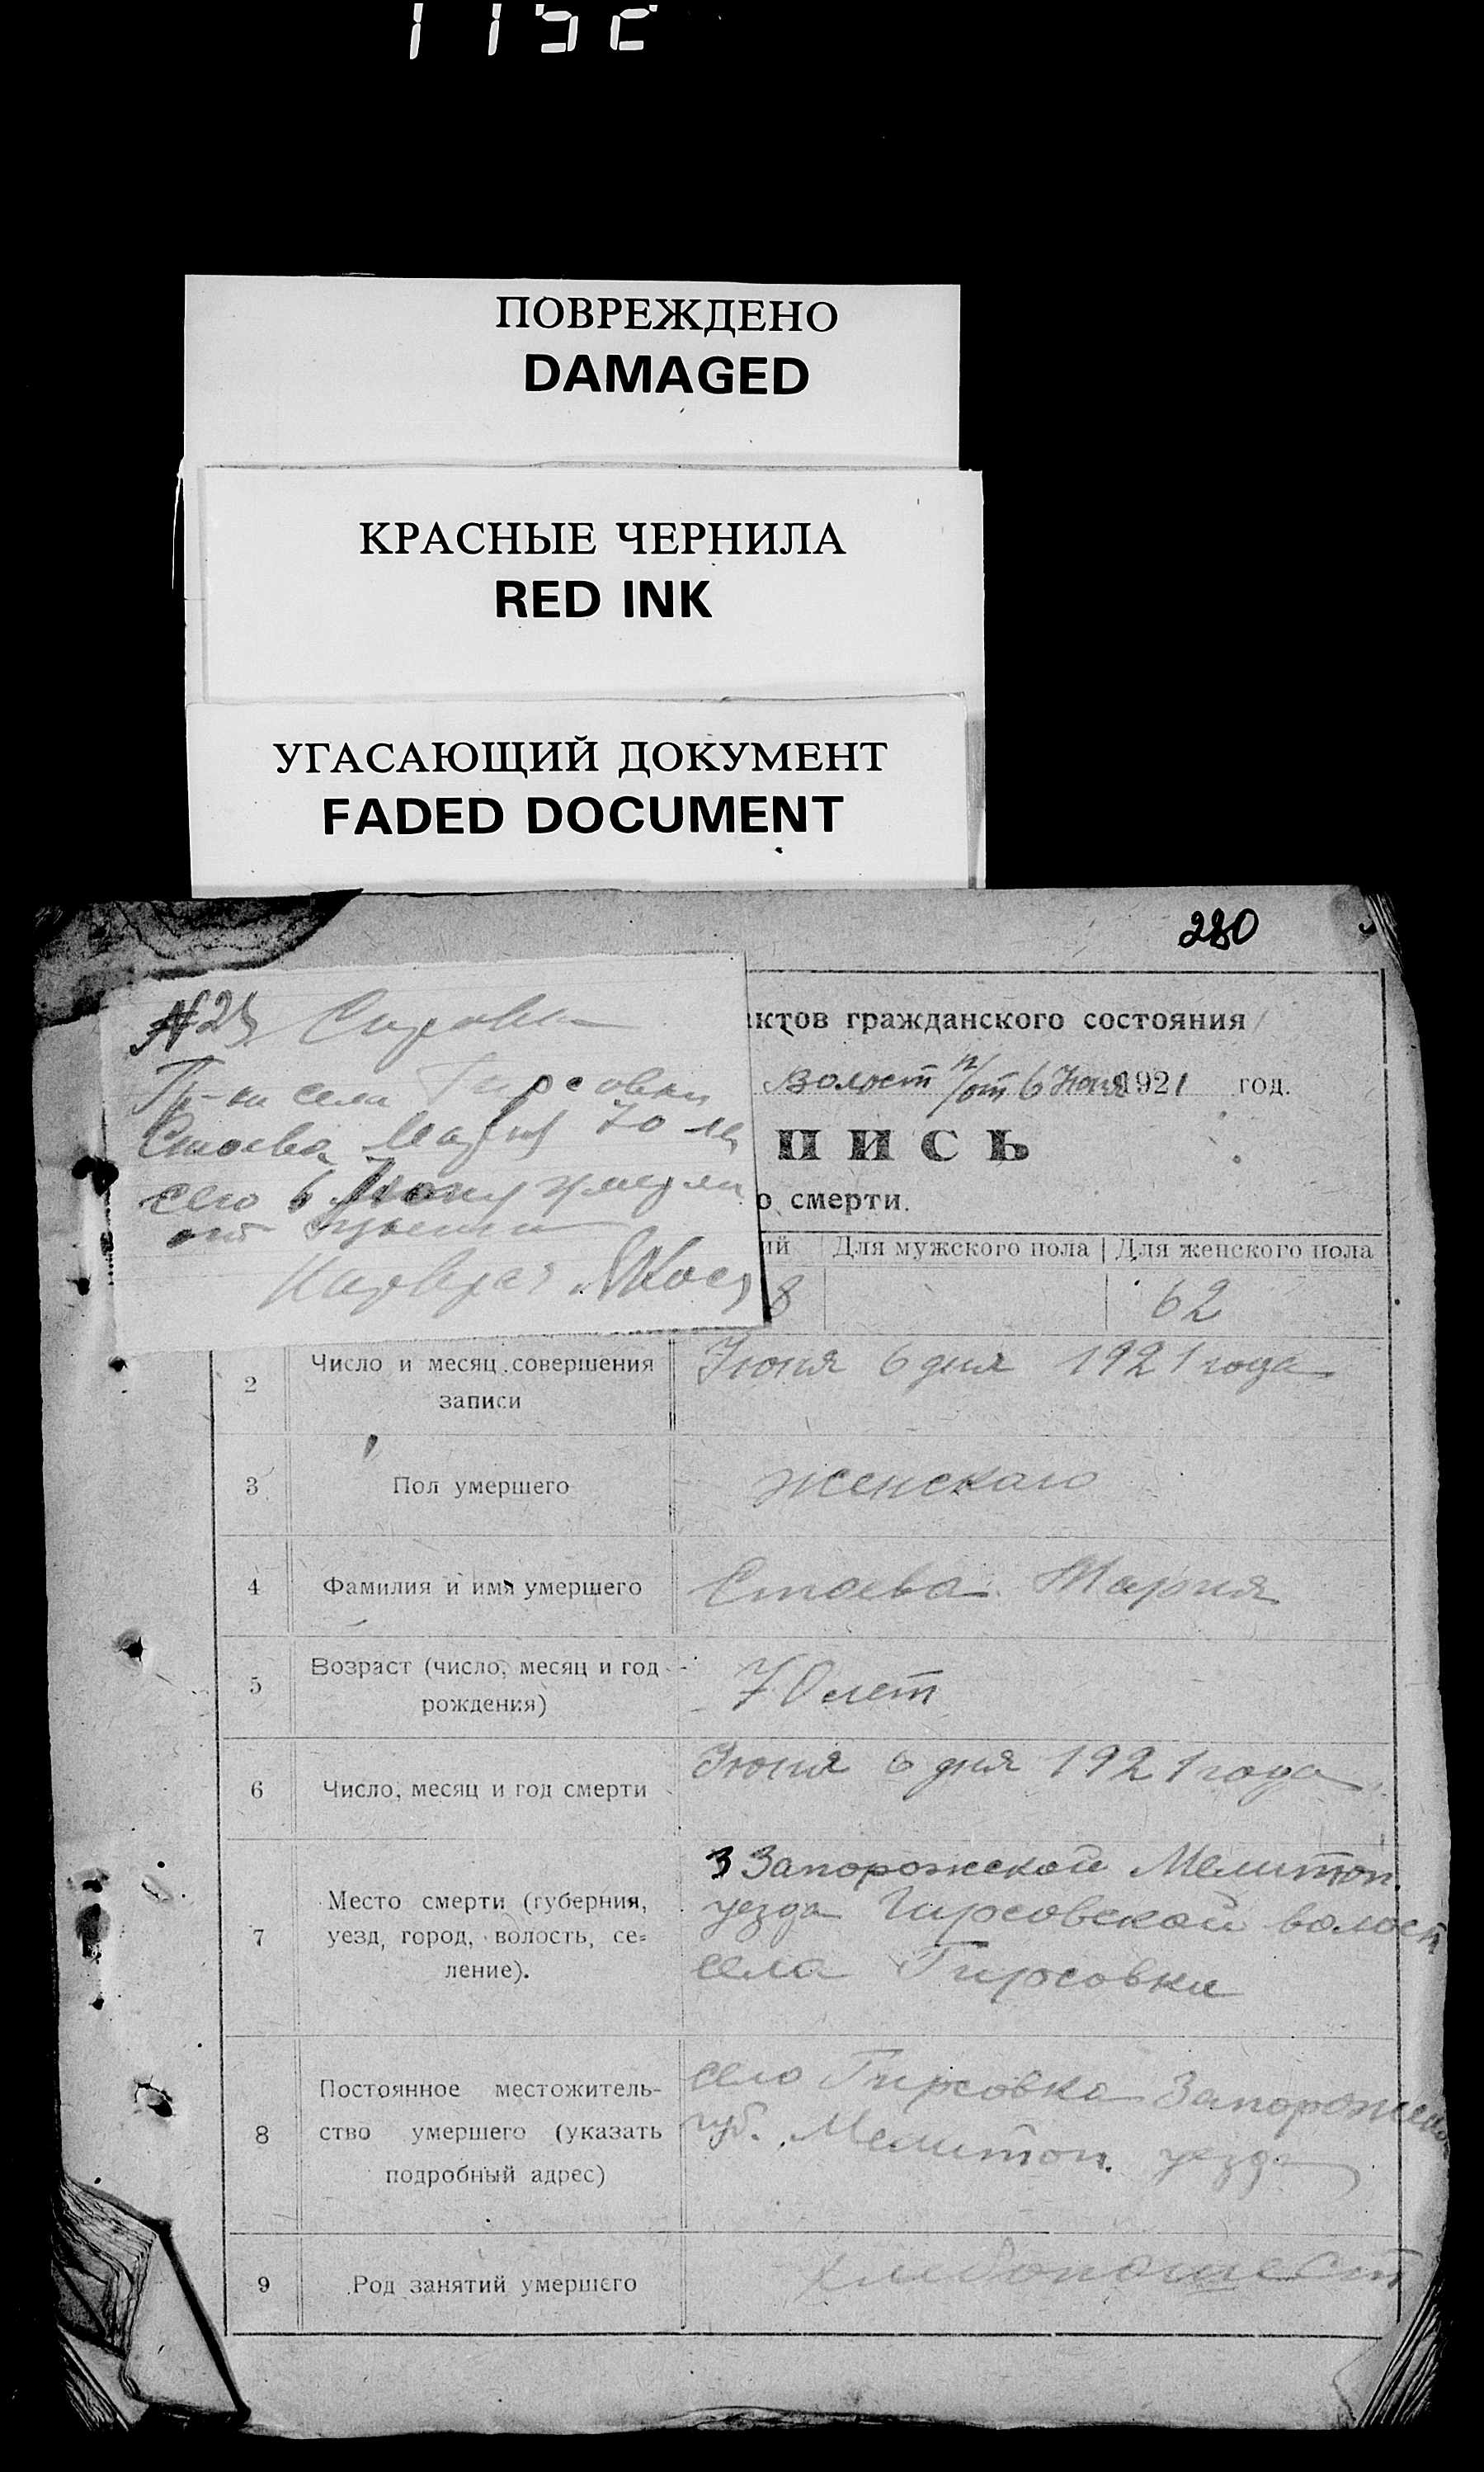 ПОВРЕЖДЕНО
DAMAGED
КРАСНЫЕ ЧЕРНИЛА
RED INK
УГАСАЮЩИЙ ДОКУМЕНТ
FADED DOCUMENT
280
села Гирсовки
Стоева 70
село 6 умерла
от
ктов гражданского состояния
Волост 6 Июня 1921 год.
ПИСЬ
о смерти.
ий Для мужского пола Для женского пола
8 62
2 Число и месяц совершения записи
Июня 6 дня 1921 года
3 Пол умершего
женскаго
4 Фамилия и имя умершего
Стоева Мария
5 Возраст (число, месяц и год рождения)
70 лет
6 Число, месяц и год смерти
Июня 6 дня 1921 года
7 Место смерти (губерния,
уезд, город, волость, се-
ление).
Запорожской Мелитоп.
уезда Гирсовской волост
села Гирсовки
8 Постоянное местожитель-
ство умершего (указать
подробный адрес)
село Гирсовка Запорожско
губ. Мелитоп. уезда
9 Род занятий умершего
хлебопашест